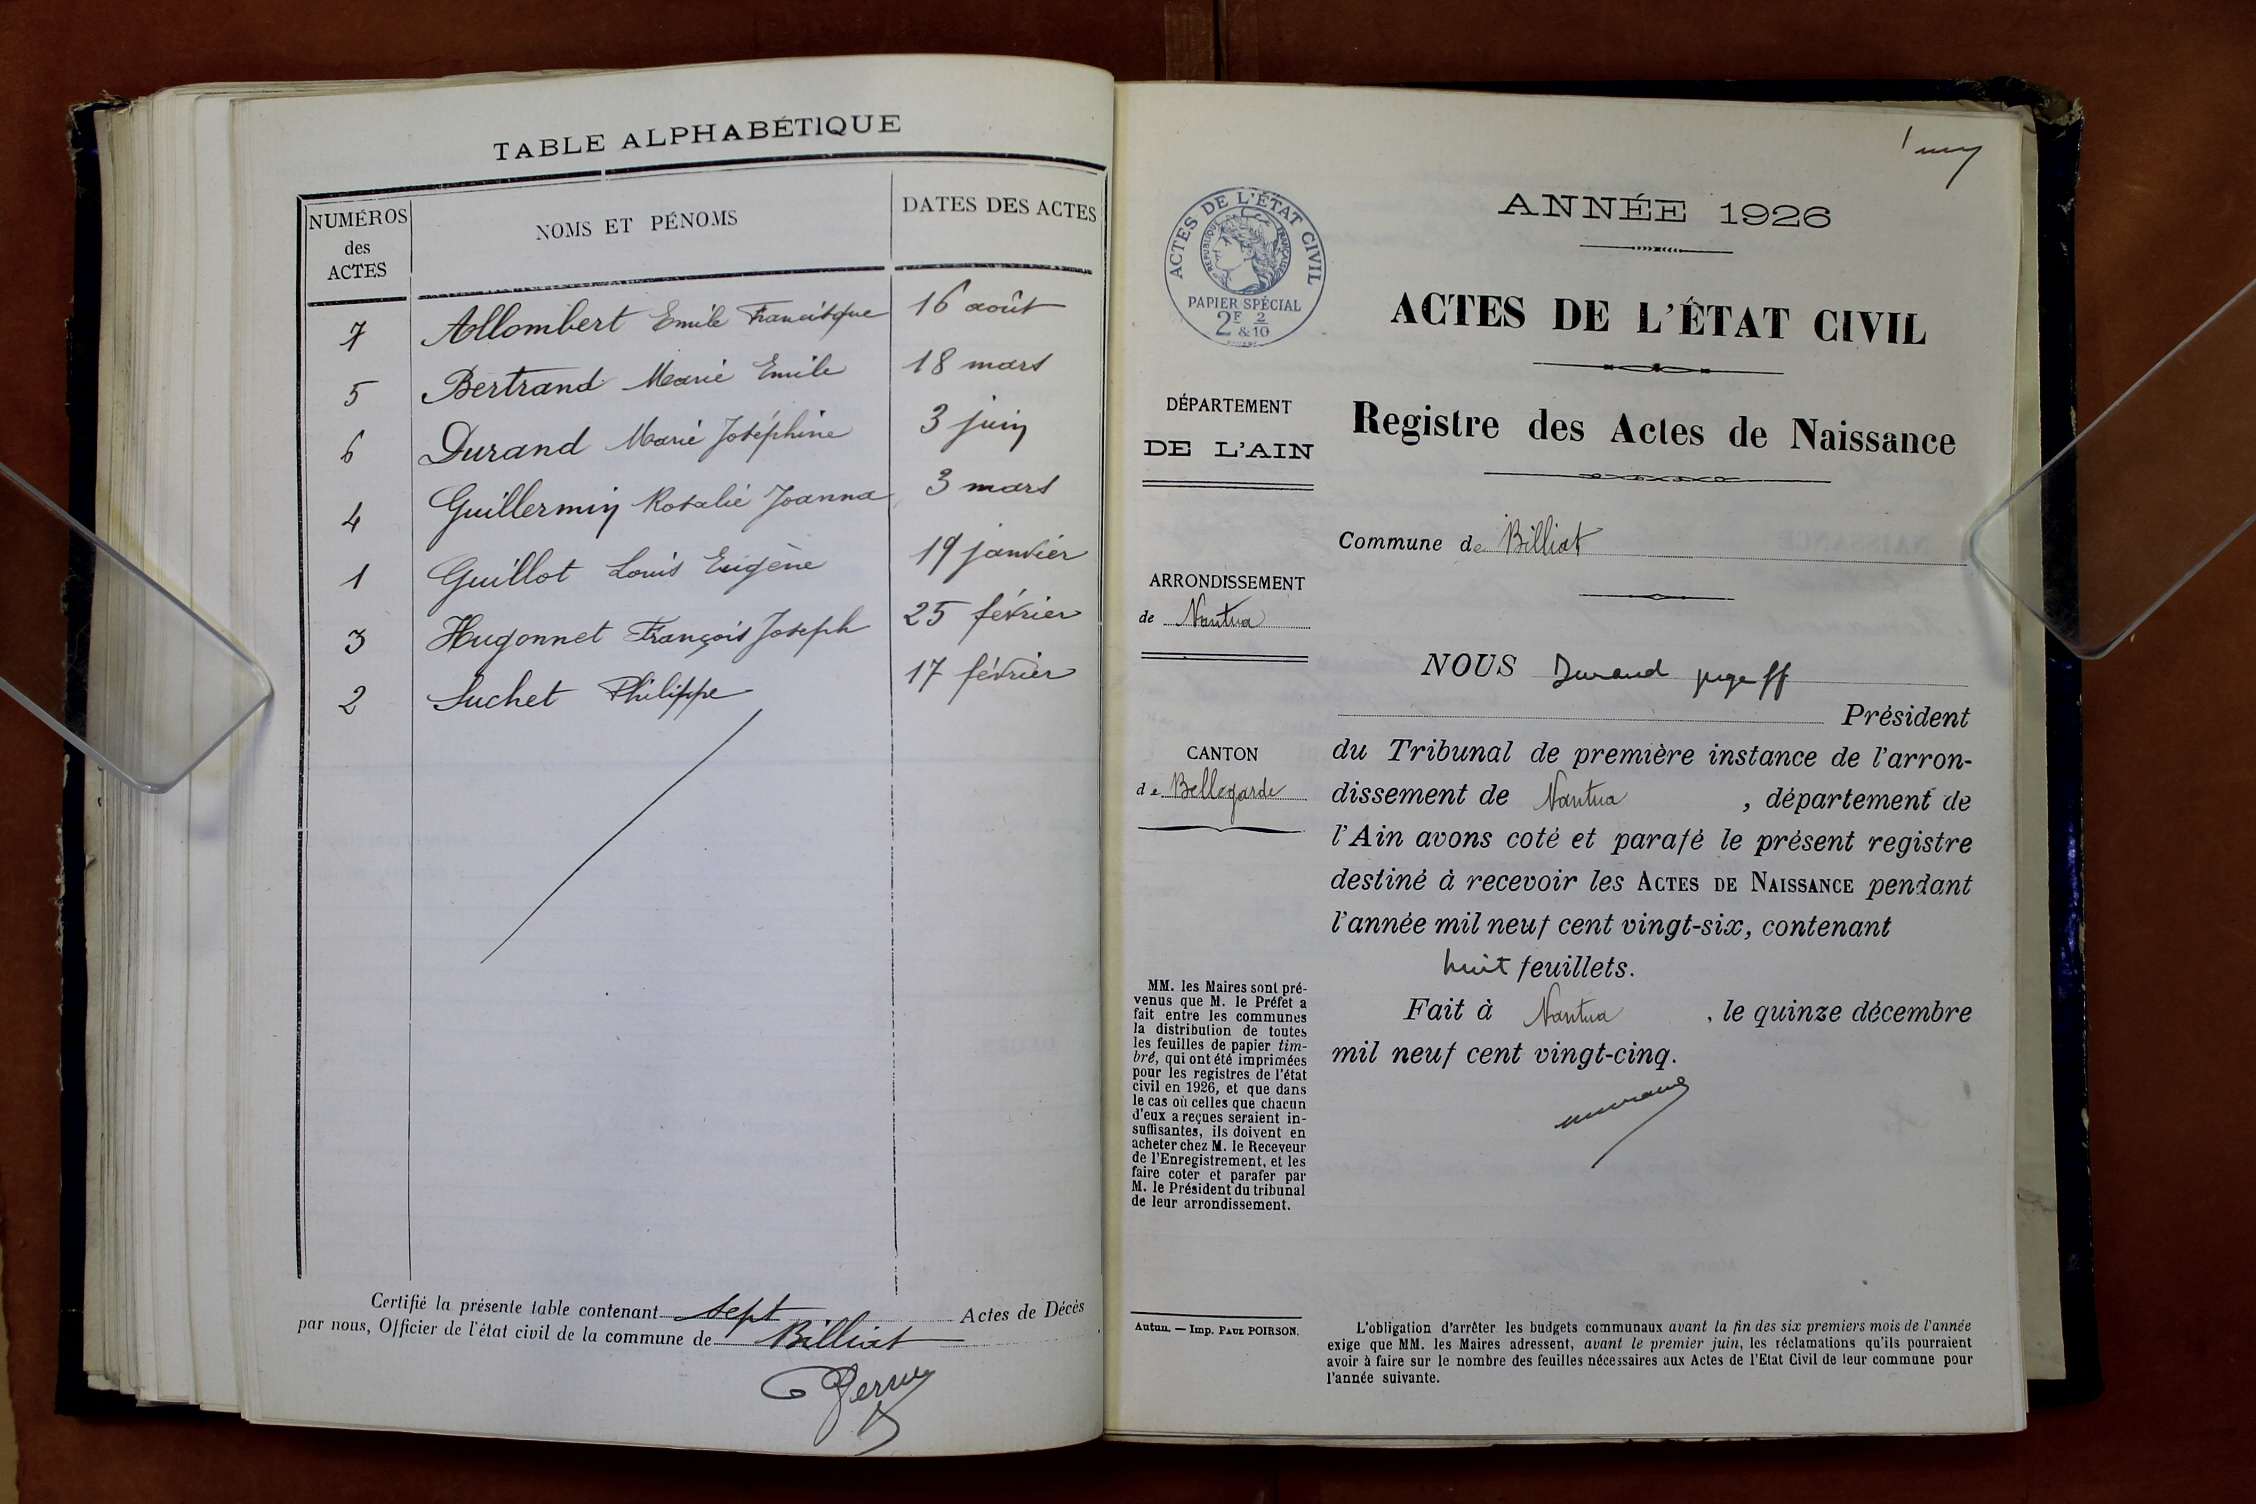 TABLE ALPHABÉTIQUE
NUMÉROS
des
ACTES
NOMS ET PÉNOMS
DATES DES ACTES
7 Allombert Emile Francisque 16 août
5 Bertrand Marie Emile 18 mars
6 Durand Marie Joséphine 3 juin
4 Guillermin Rosalie Joanna 3 mars
1 Guillot Louis Eugène 19 janvier
3 Hugonnet François Joseph 25 février
2 Suchet Philippe 17 février
Certifié la présente table contenant sept Actes de Décès
par nous, Officier de l'état civil de la commune de Billiat
ACTES DE L'ÉTAT CIVIL
RÉPUBLIQUE FRANÇAISE
PAPIER SPÉCIAL
2F & 2/10
DÉPARTEMENT
DE L'AIN
ARRONDISSEMENT
de Nantua
CANTON
de Bellegarde
MM. les Maires sont pré-
venus que M. le Préfet a
fait entre les communes
la distribution de toutes
les feuilles de papier tim-
bré, qui ont été imprimées
pour les registres de l'état
civil en 1926, et que dans
le cas où celles que chacun
d'eux a reçues seraient in-
suffisantes, ils doivent en
acheter chez M. le Receveur
de l'Enregistrement, et les
faire coter et parafer par
M. le Président du tribunal
de leur arrondissement.
Autun. — Imp. PAUL POIRSON.
ANNÉE 1926
ACTES DE L'ÉTAT CIVIL
Registre des Actes de Naissance
Commune de Billiat
NOUS Durand juge ff
Président
du Tribunal de première instance de l'arron-
dissement de Nantua , département de
l'Ain avons coté et parafé le présent registre
destiné à recevoir les ACTES DE NAISSANCE pendant
l'année mil neuf cent vingt-six, contenant
huit feuillets.
Fait à Nantua , le quinze décembre
mil neuf cent vingt-cinq.
L'obligation d'arrêter les budgets communaux avant la fin des six premiers mois de l'année
exige que MM. les Maires adressent, avant le premier juin, les réclamations qu'ils pourraient
avoir à faire sur le nombre des feuilles nécessaires aux Actes de l'Etat Civil de leur commune pour
l'année suivante.